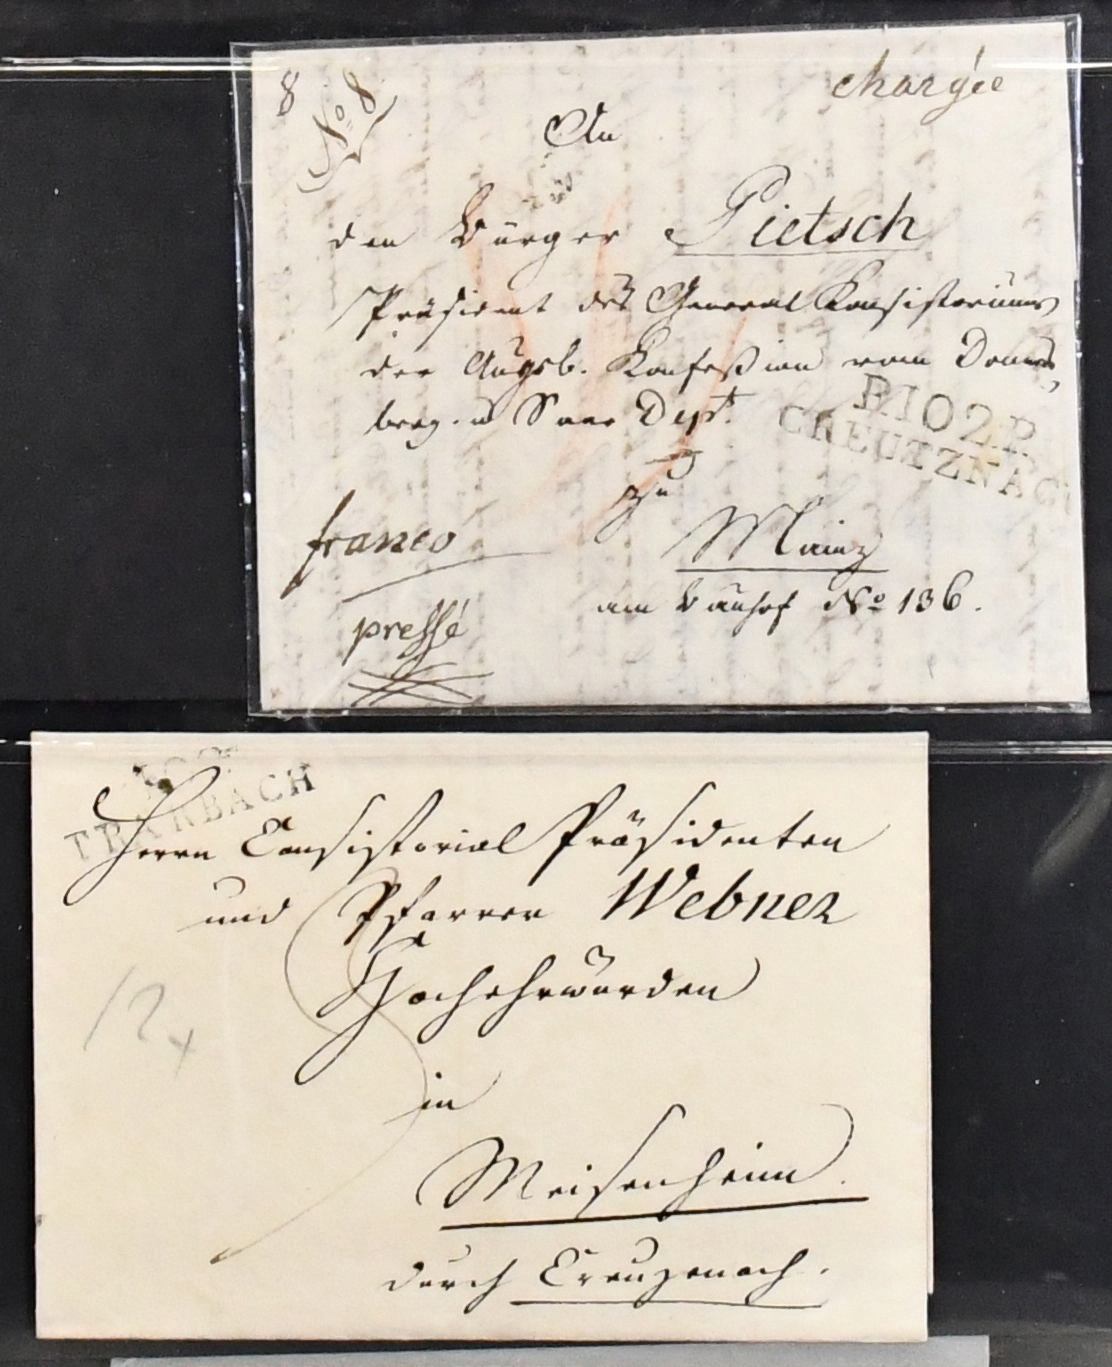 8
No 8
chargée
An
den Bürger Pietsch
Präsident des General Konsistoriums
der Augsb. Konfeßion vom Donners,
berg. u Saar Dept.
P.102.P.
CREUTZNAC
zu
Mainz
am Bauhof No 136.
franco
pressé
TRARBACH
Herrn Consistorial Präsidenten
und Pfarrer Webner
Hochehrwürden
in
Meisenheim.
durch Creuzenach.
12